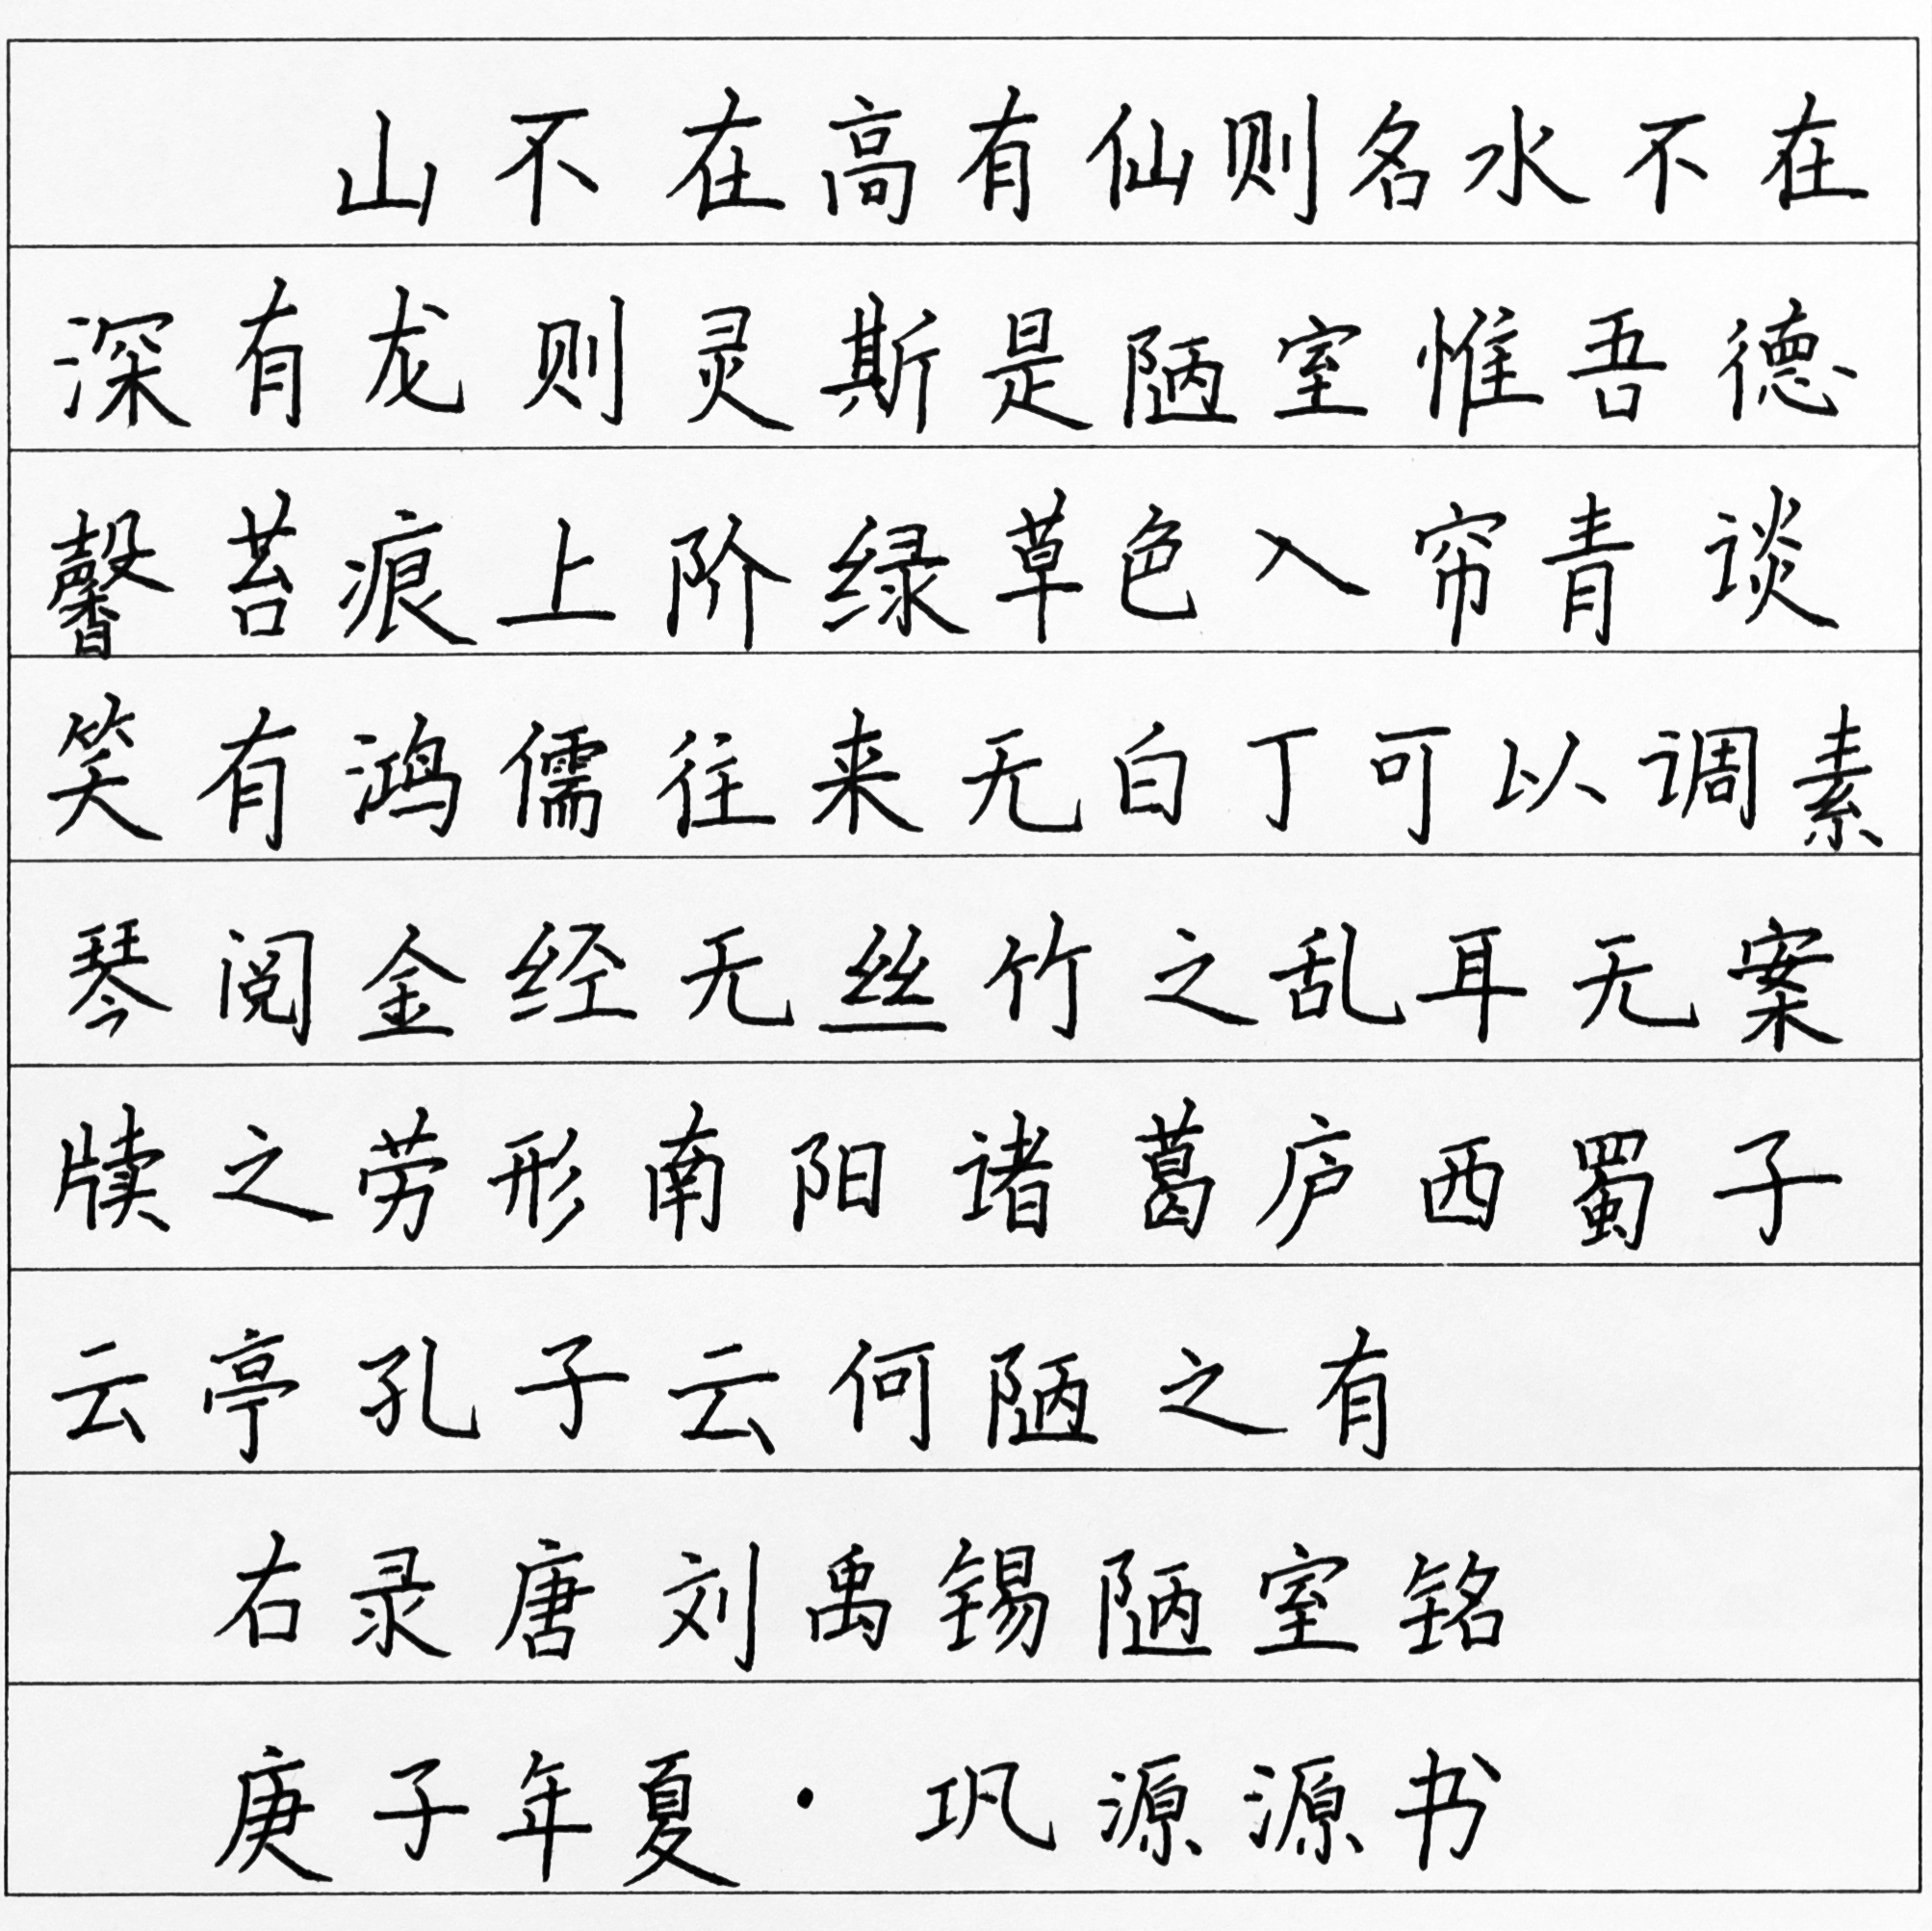 山不在高有仙则名水不在
深有龙则灵斯是陋室惟吾德
馨苔痕上阶绿草色入帘青谈
笑有鸿儒往来无白丁可以调素
琴阅金经无丝竹之乱耳无案
牍之劳形南阳诸葛庐西蜀子
云亭孔子云何陋之有
右录唐刘禹锡陋室铭
庚子年夏·巩源源书